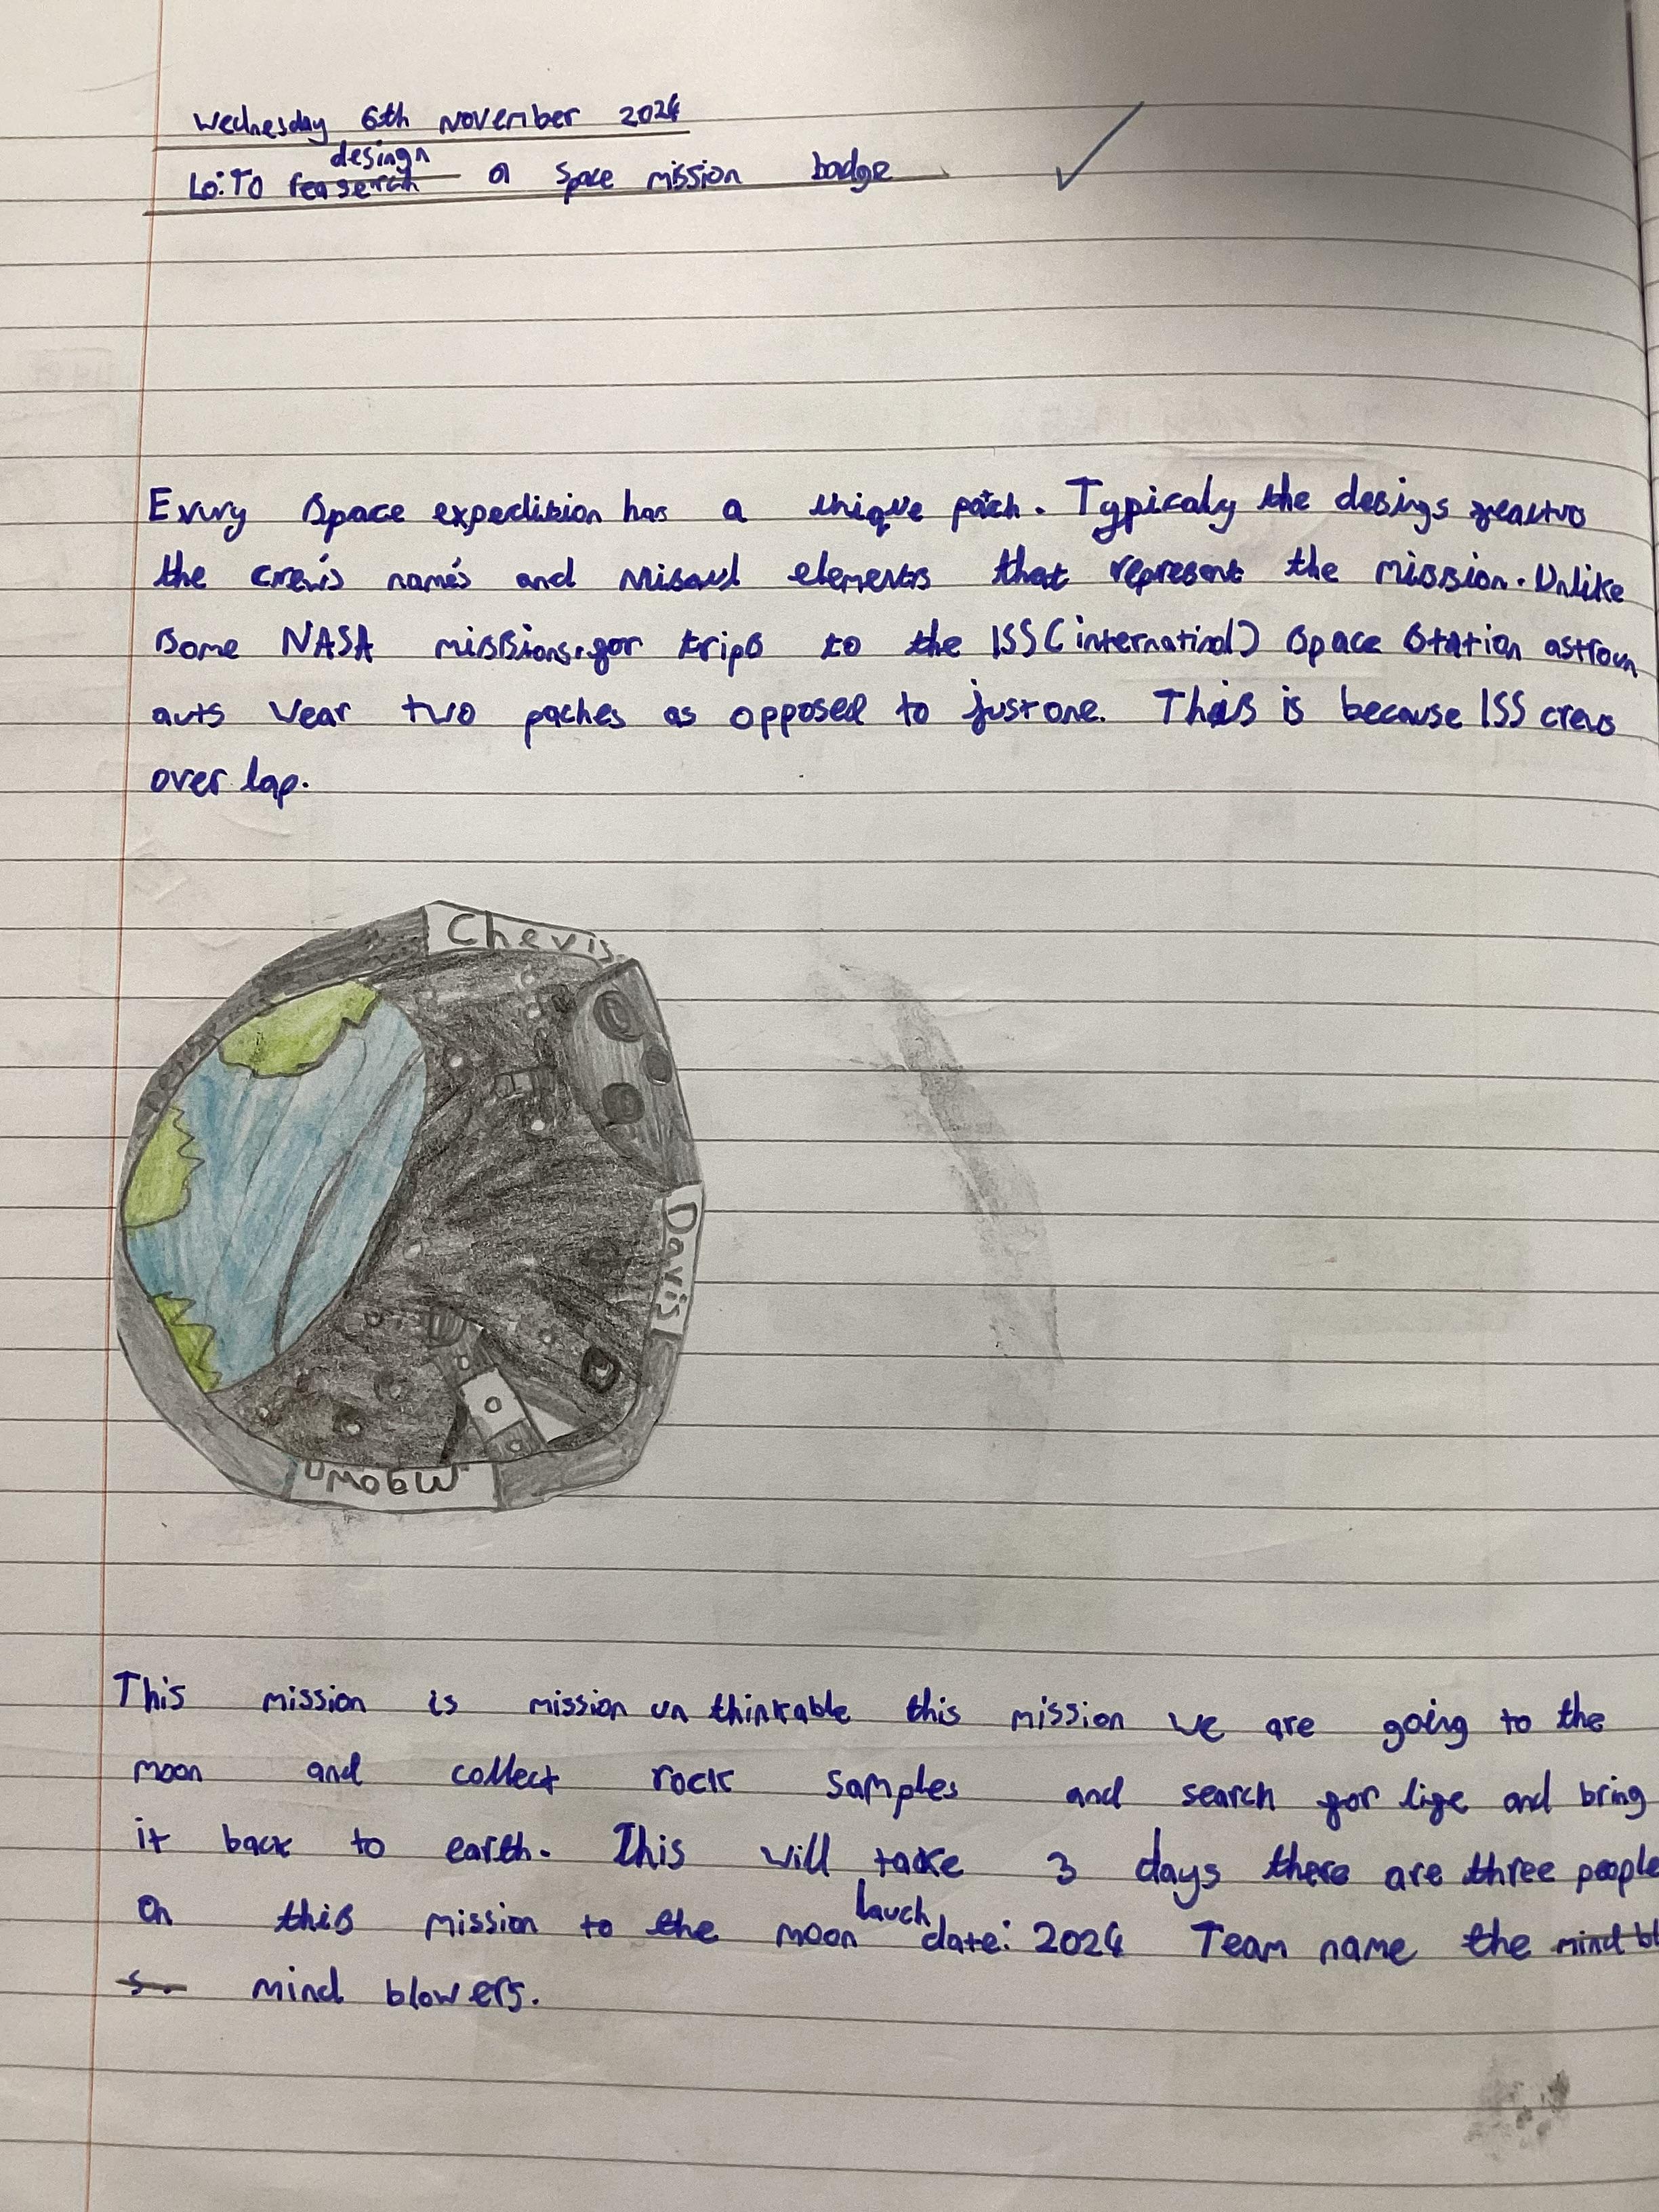 Wednesday 6th November 2024
desingn
Lo: To reaserch a space mission badge
Evury Space expedition has a unique patch. Typicaly the desings
the crew's name's and visaul elements that represent the mission. Unlike
some NASA missions. for trips to the ISS (internatinol) Space Station astroun
auts wear two paches as opposed to just one. This is because ISS crews
over lap.
Chevis
Davis
This mission is mission un thinkable this mission we are going to the
moon and collect rock samples and search for life and bring
it back to earth. This will take 3 days there are three people
lauch
on this mission to the moon date: 2024 Team name the mind bl
s. mind blowers.